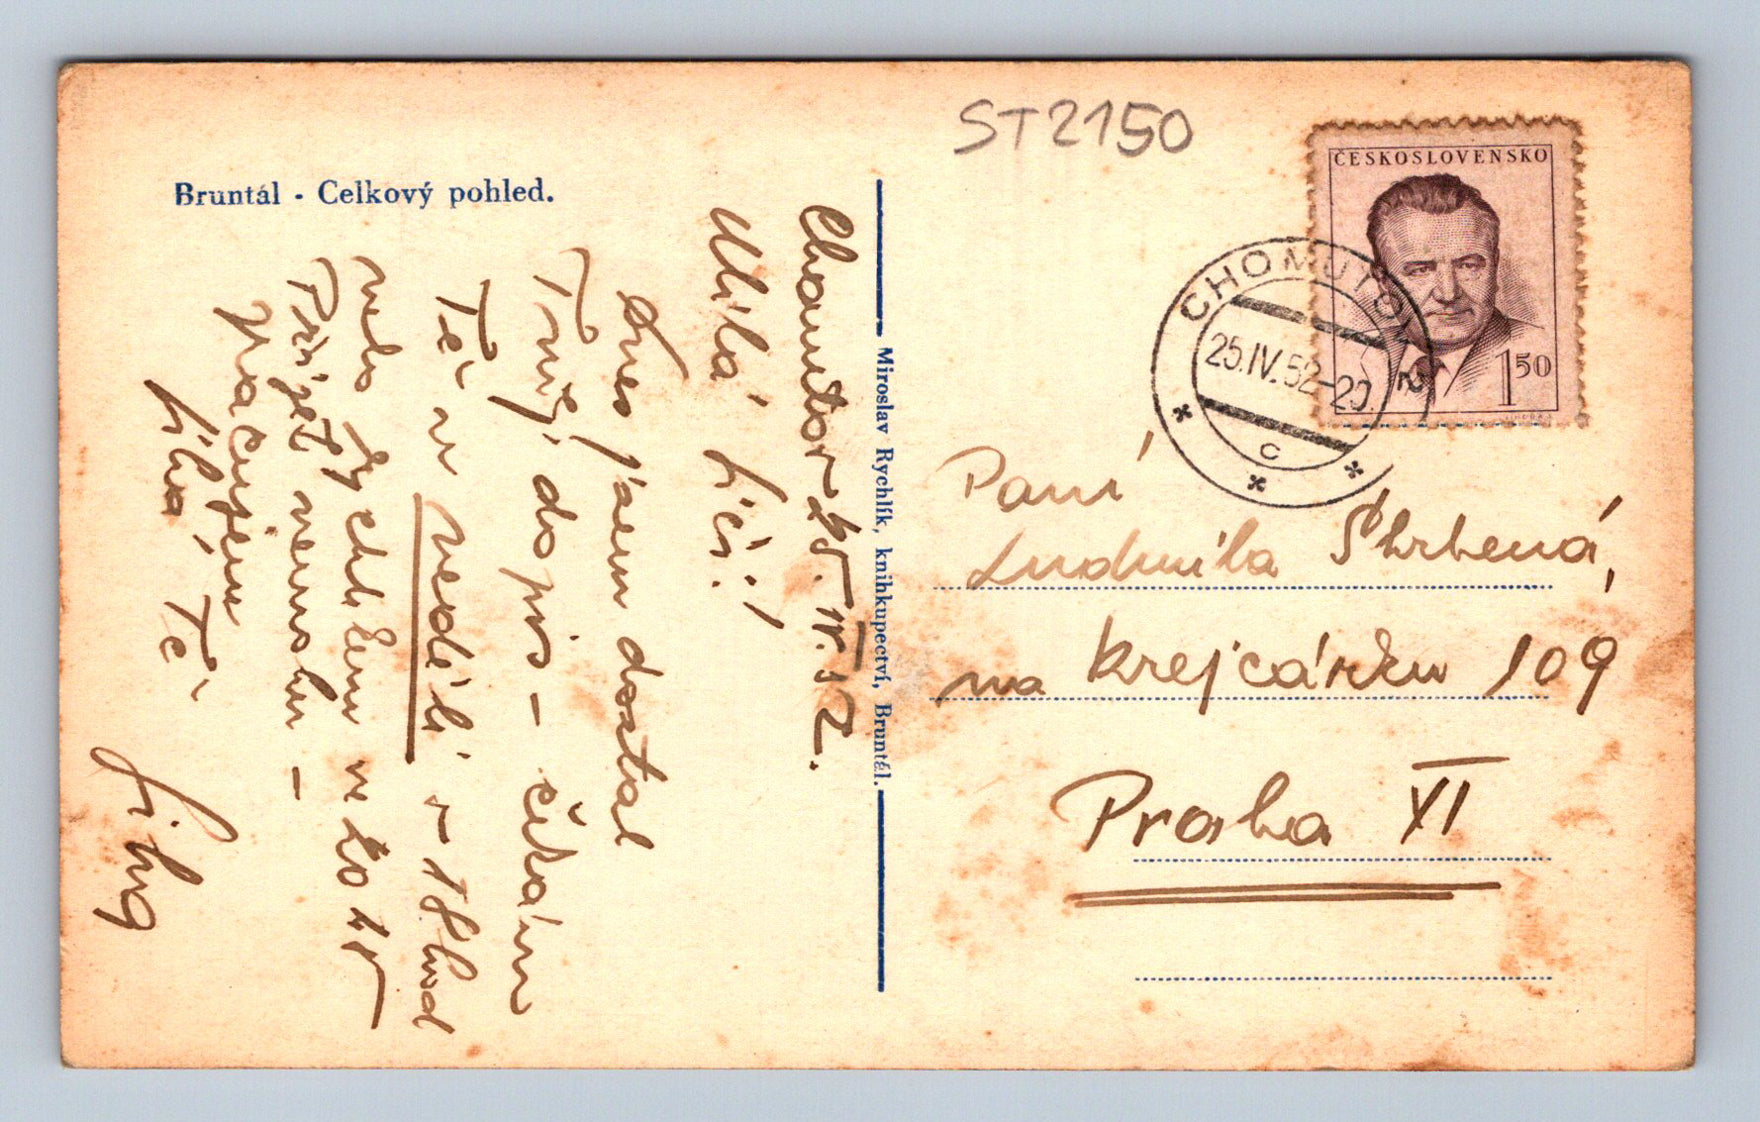 ST2150
ČESKOSLOVENSKO
1 50
CHOMUTOV 2
25.IV.52-20
C
Bruntál - Celkový pohled.
Miroslav Rychlík, knihkupectví, Bruntál.
Chomutov 25. IV. 52.
Milá
Dnes jsem dostal
Tvůj dopis - čekám
Tě v neděli v 18 hod
nebo rychlíkem ve 20 25
Přijet nemohu -
Vzpomínám
líbá Tě
Paní
Ludmila Skrbená,
na Krejcárku 109
Praha XI